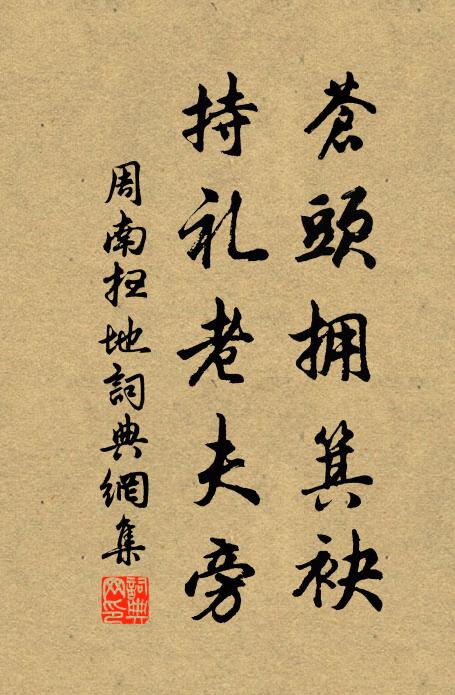 蒼頭拥箕袂
持礼老夫旁
周南扫地詞典網集
詞典網印